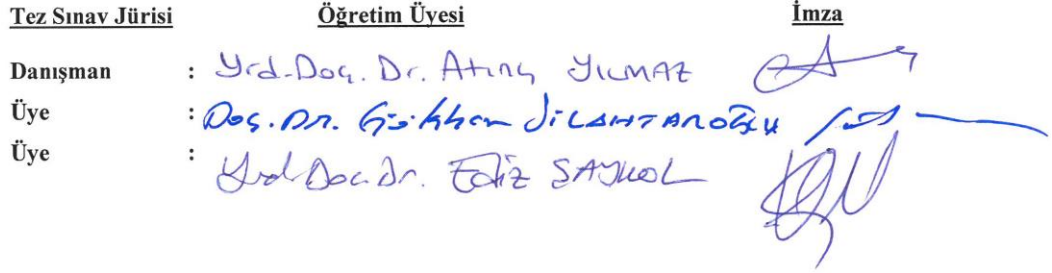 Tez Sınav Jürisi Öğretim Üyesi İmza
Danışman : Yrd.Doç. Dr. Atınç YILMAZ
Üye : Doç. Dr. Gökhan SİLAHTAROĞLU
Üye : Yrd.Doç.Dr. Ediz ŞAYKOL